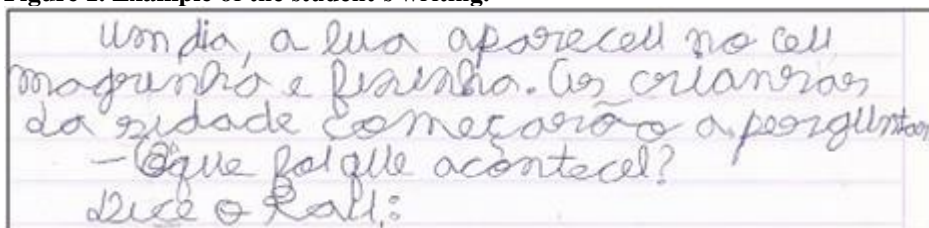 Example of the student's writing.
Um dia, a lua apareceu no ceu
magrinha e fininha. As criansas
da sidade começarão a perguntar
- O que foi que acontecel?
Dice o Raul: